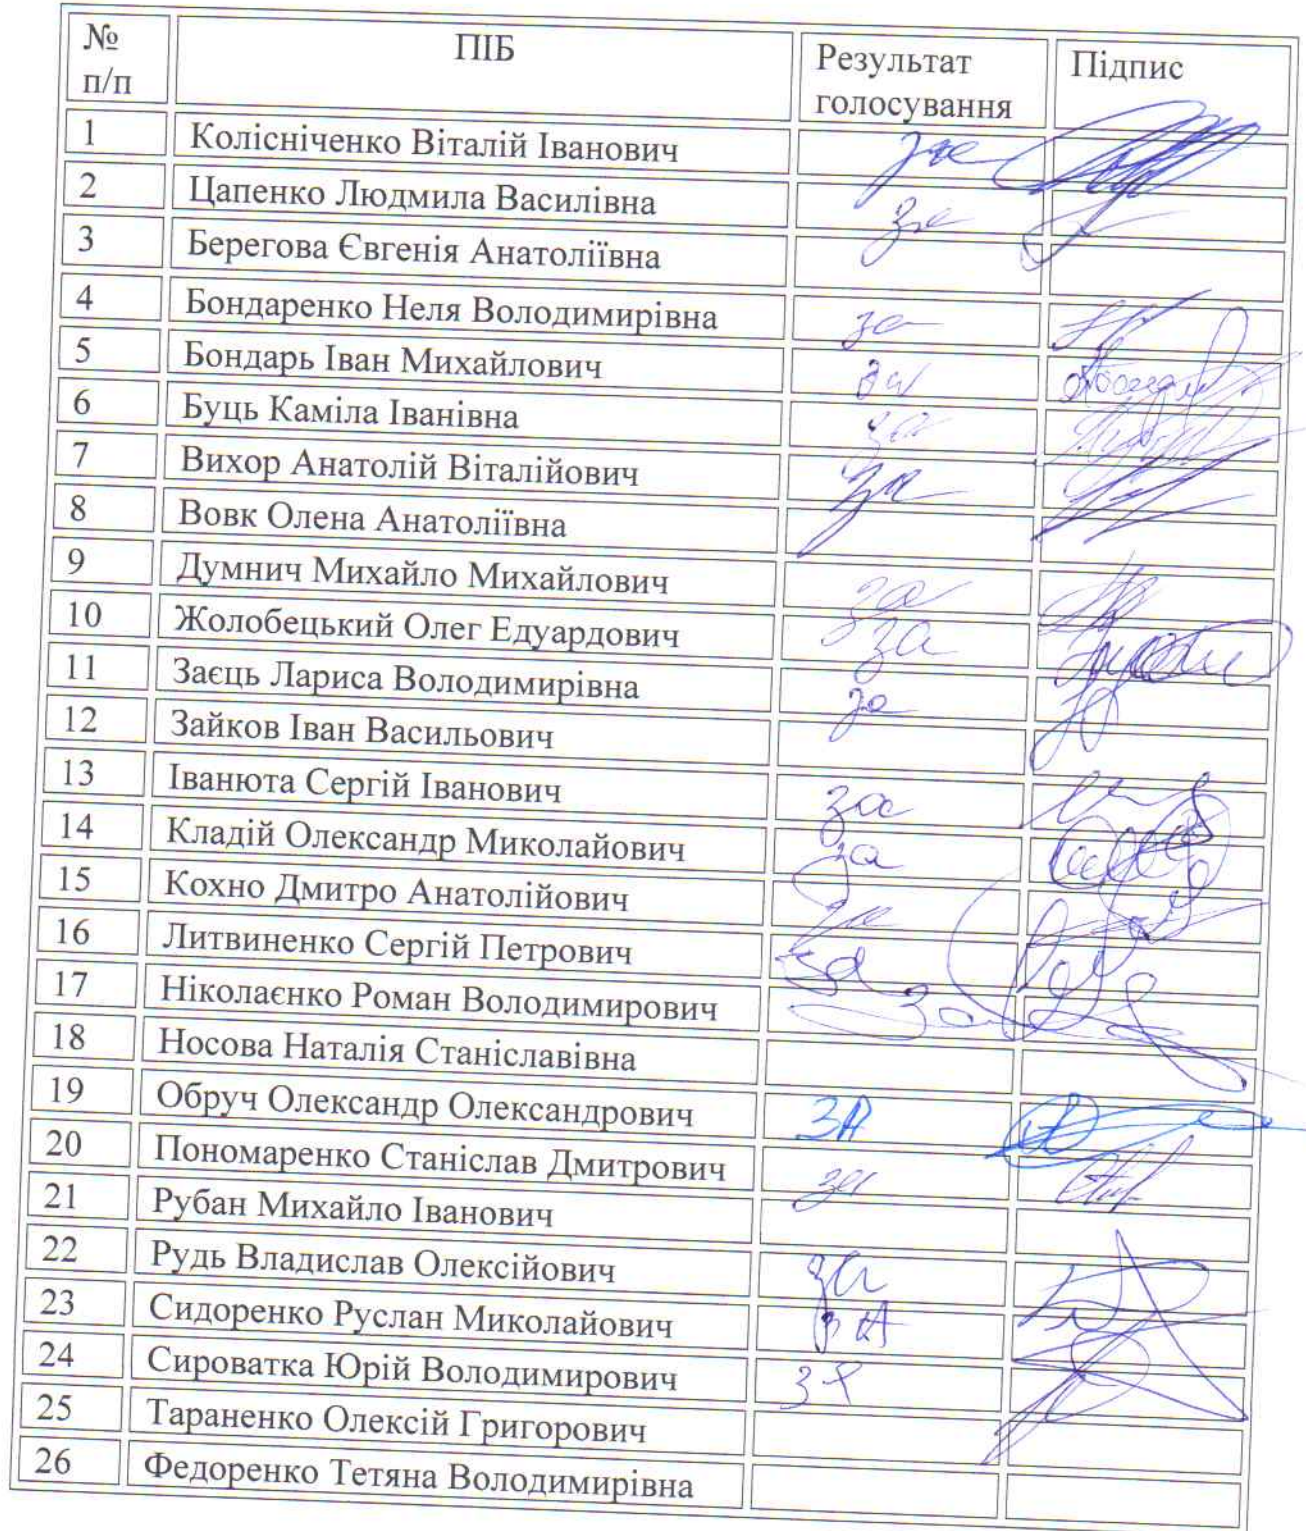 № п/п ПІБ Результат голосування Підпис
1 Колісніченко Віталій Іванович за
2 Цапенко Людмила Василівна за
3 Берегова Євгенія Анатоліївна
4 Бондаренко Неля Володимирівна за
5 Бондарь Іван Михайлович за
6 Буць Каміла Іванівна за
7 Вихор Анатолій Віталійович за
8 Вовк Олена Анатоліївна
9 Думнич Михайло Михайлович за
10 Жолобецький Олег Едуардович за
11 Заєць Лариса Володимирівна за
12 Зайков Іван Васильович
13 Іванюта Сергій Іванович за
14 Кладій Олександр Миколайович за
15 Кохно Дмитро Анатолійович за
16 Литвиненко Сергій Петрович за
17 Ніколаєнко Роман Володимирович за
18 Носова Наталія Станіславівна
19 Обруч Олександр Олександрович ЗА
20 Пономаренко Станіслав Дмитрович за
21 Рубан Михайло Іванович
22 Рудь Владислав Олексійович за
23 Сидоренко Руслан Миколайович зА
24 Сироватка Юрій Володимирович за
25 Тараненко Олексій Григорович
26 Федоренко Тетяна Володимирівна